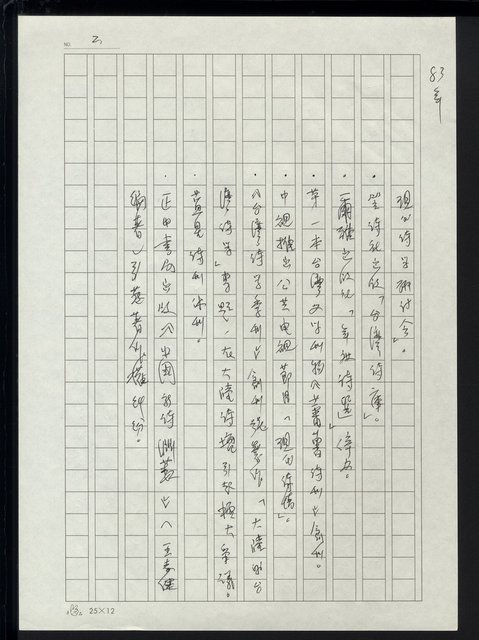 NO. 2
83年
現代詩學研討會」。
・笠詩社出版「台灣詩庫」。
・爾雅出版社「年度詩選」停出。
・第一本台灣文學刊物《蕃薯詩刊》創刊。
・中視推出公共电視節目「現代詩情」。
・《台灣詩學季刊》創刊號製作「大陸的台
灣詩學」專題,在大陸詩壇引起極大爭議。
・黃晃詩刊休刊。
・正中書局出版《中國新詩淵藪》(王志健
編著)引起著作權糾紛。
25×12